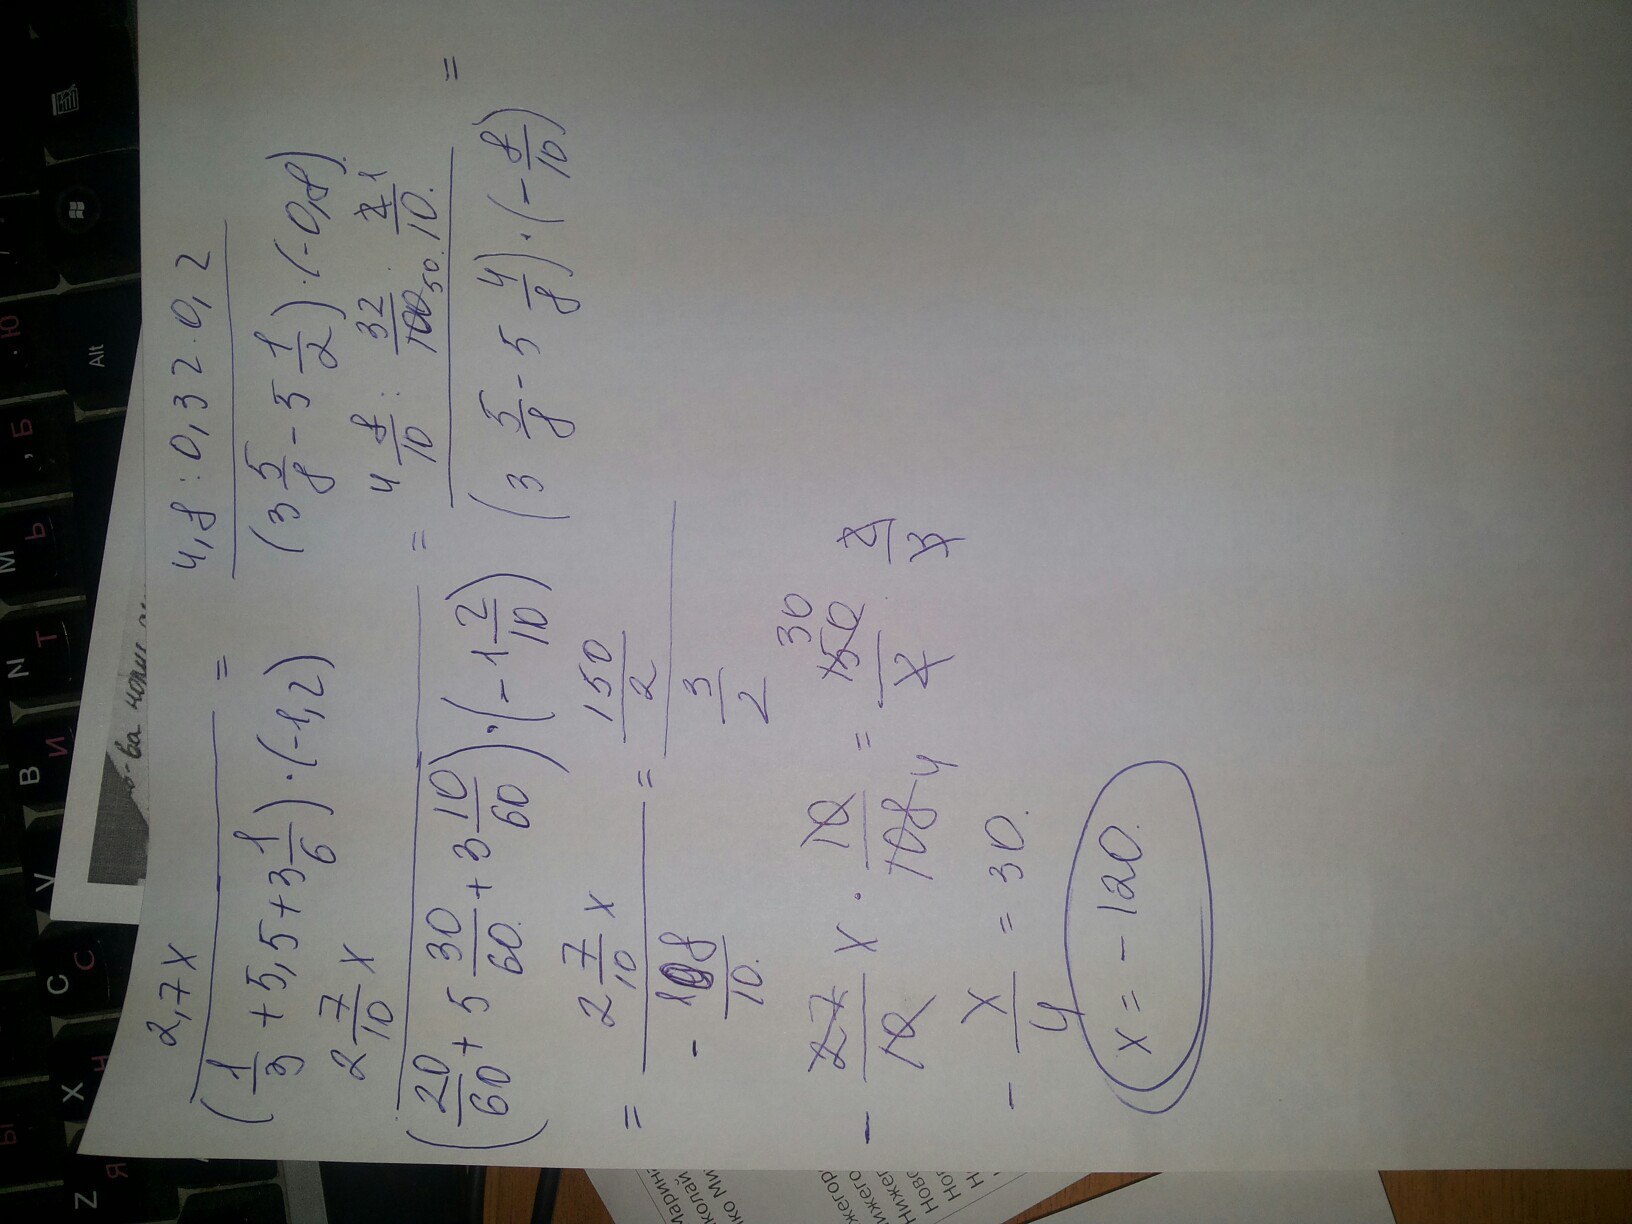 2,7x / (1/3 + 5,5 + 3 1/6) · (-1,2) = 4,8 : 0,32 · 0,2 / (3 5/8 - 5 1/2) · (-0,8)
2 7/10 x / (20/60 + 5 30/60 + 3 10/60) · (-1 2/10) = 4 8/10 : 32/100 50 · 2 1/10 / (3 5/8 - 5 4/8) · (-8/10) =
= 2 7/10 x / - 108/10 = 150/2 / 3/2
- 27/10 x · 10/108 4 = 150 30/2 · 2/3
- x/4 = 30.
x = -120.
Z Я
X Ч
C С
V
B И
N Т
M Ь
, Б
. Ю
Alt
Ы